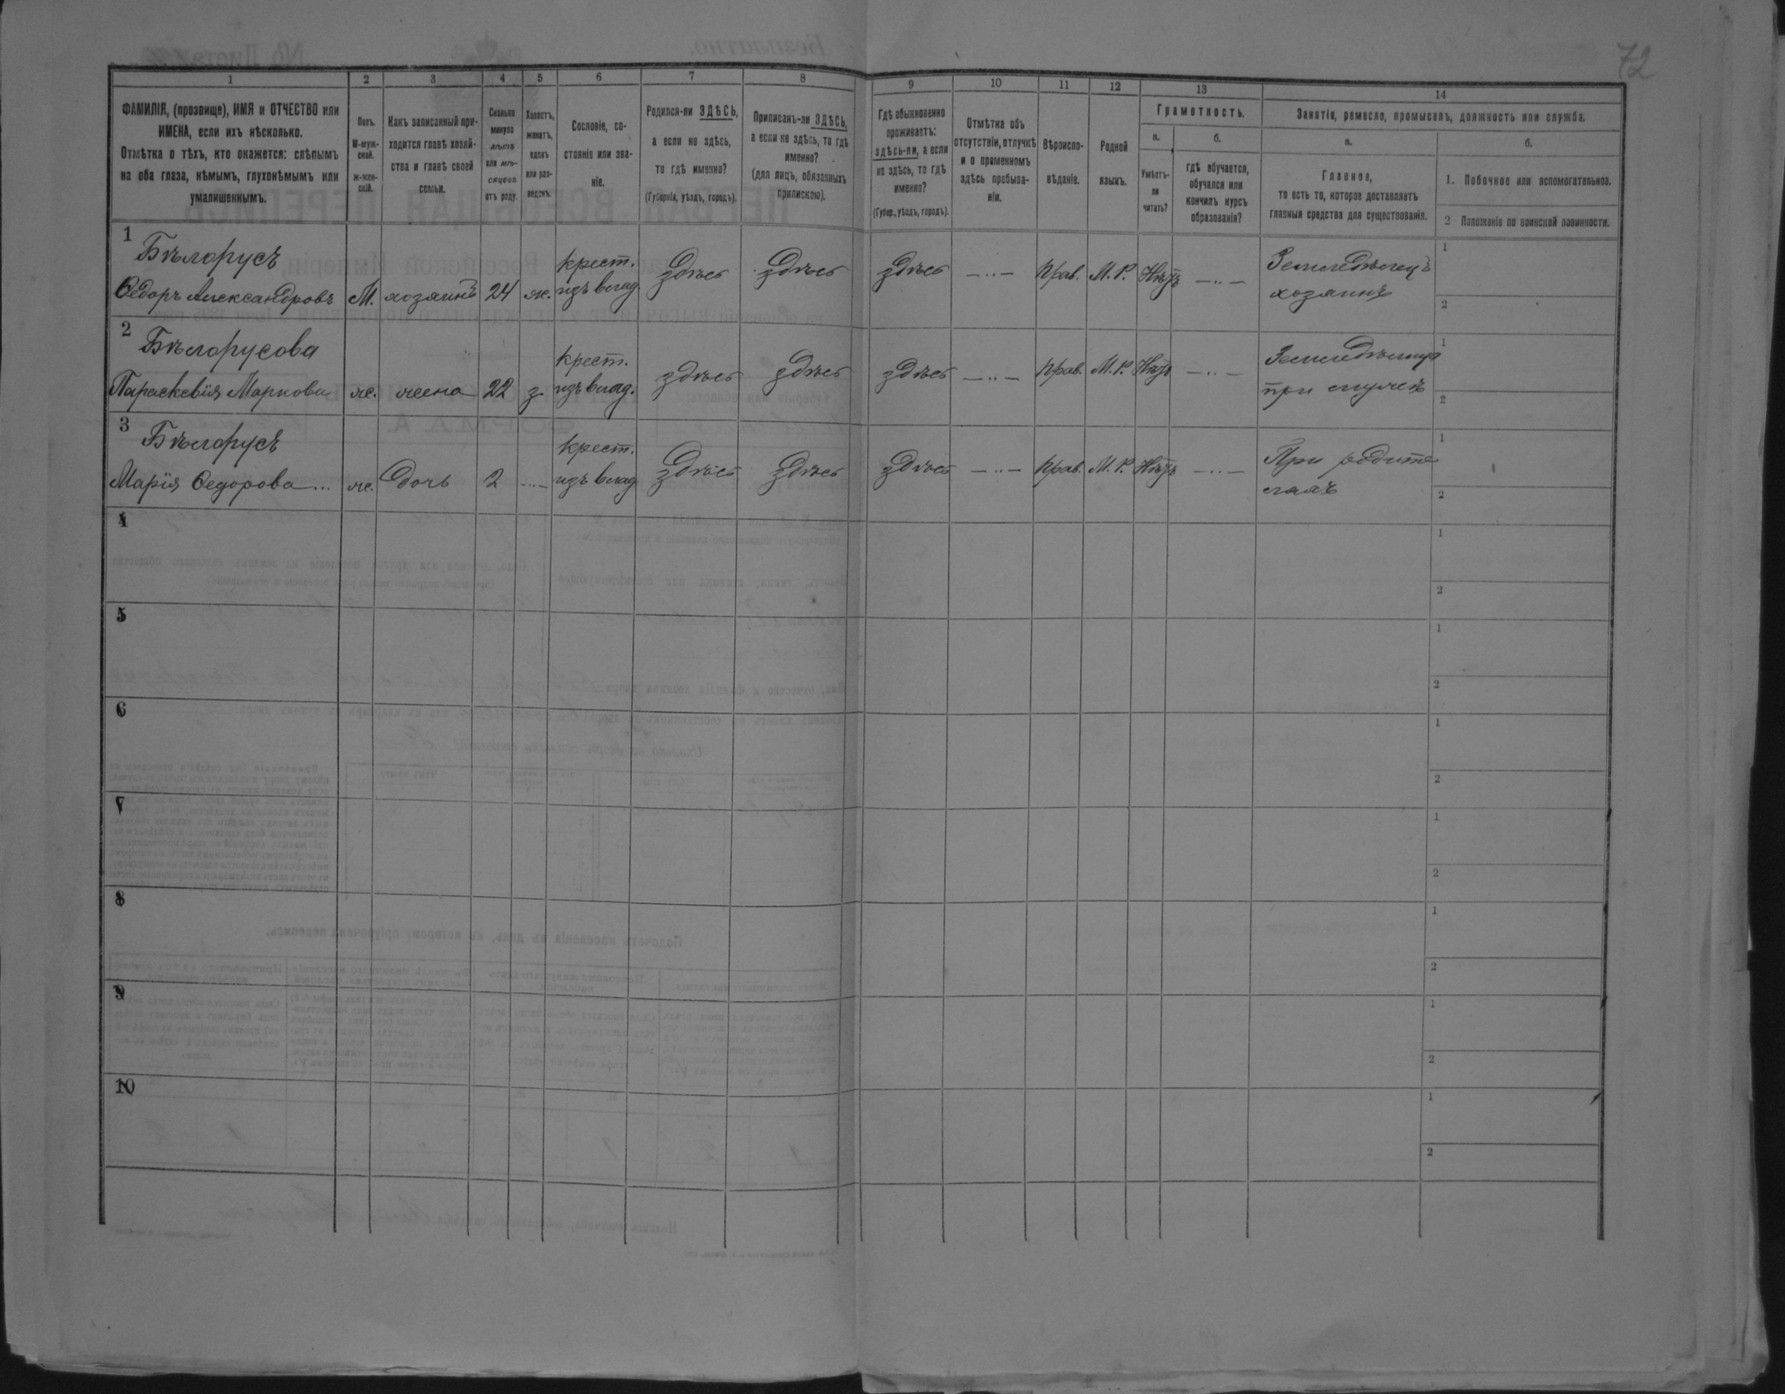 72
1 2 3 4 5 6 7 8 9 10 11 12 13 14
ФАМИЛІЯ, (прозвище), ИМЯ и ОТЧЕСТВО или
ИМЕНА, если ихъ нѣсколько.
Отмѣтка о тѣхъ, кто окажется: слѣпымъ
на оба глаза, нѣмымъ, глухонѣмымъ или
умалишеннымъ.
Полъ.
М-муж-
ской.
Ж-жен-
скій.
Какъ записанный при-
ходится главѣ хозяй-
ства и главѣ своей
семьи.
Сколько
минуло
лѣтъ
или мѣ-
сяцевъ
отъ роду.
Холостъ,
женатъ,
вдовъ
или раз-
веденъ.
Сословіе, со-
стояніе или зва-
ніе.
Родился-ли ЗДѢСЬ,
а если не здѣсь,
то гдѣ именно?
(Губернія, уѣздъ, городъ).
Приписанъ-ли ЗДѢСЬ,
а если не здѣсь, то гдѣ
именно?
(для лицъ, обязанныхъ
припискою).
Гдѣ обыкновенно
проживаетъ:
здѣсь-ли, а если
не здѣсь, то гдѣ
именно?
(Губер., уѣздъ, городъ).
Отмѣтка объ
отсутствіи, отлучкѣ
и о временномъ
здѣсь пребыва-
ніи.
Вѣроиспо-
вѣданіе.
Родной
языкъ.
Грамотность.
а.
Умѣетъ-
ли
читать?
б.
гдѣ обучается,
обучался или
кончилъ курсъ
образованія?
Занятія, ремесло, промыселъ, должность или служба.
а.
Главное,
то есть то, которое доставляетъ
главныя средства для существованія.
б.
1. Побочное или вспомогательное.
2 Положеніе по воинской повинности.
1 Бѣлорусъ крест. Земледѣлецъ 1
Ѳедоръ Александровъ М. хозяинъ 24 ж. изъ влад. здѣсь здѣсь здѣсь — ·· — Прав. М. Р. Нѣтъ — ·· — хозяинъ 2
2 Бѣлорусова крест. 1
Параскевія Маркова ж. жена 22 з. изъ влад. здѣсь здѣсь здѣсь — ·· — Прав. М. Р. Нѣтъ — ·· — при мужѣ 2
3 Бѣлорусъ крест. При родите 1
Марія Ѳедорова ... ж. дочь 2 — ·· — изъ влад. здѣсь здѣсь здѣсь — ·· — Прав. М. Р. Нѣтъ — ·· — ляхъ 2
4 1
2
5 1
2
6 1
2
7 1
2
8 1
2
9 1
2
10 1
2